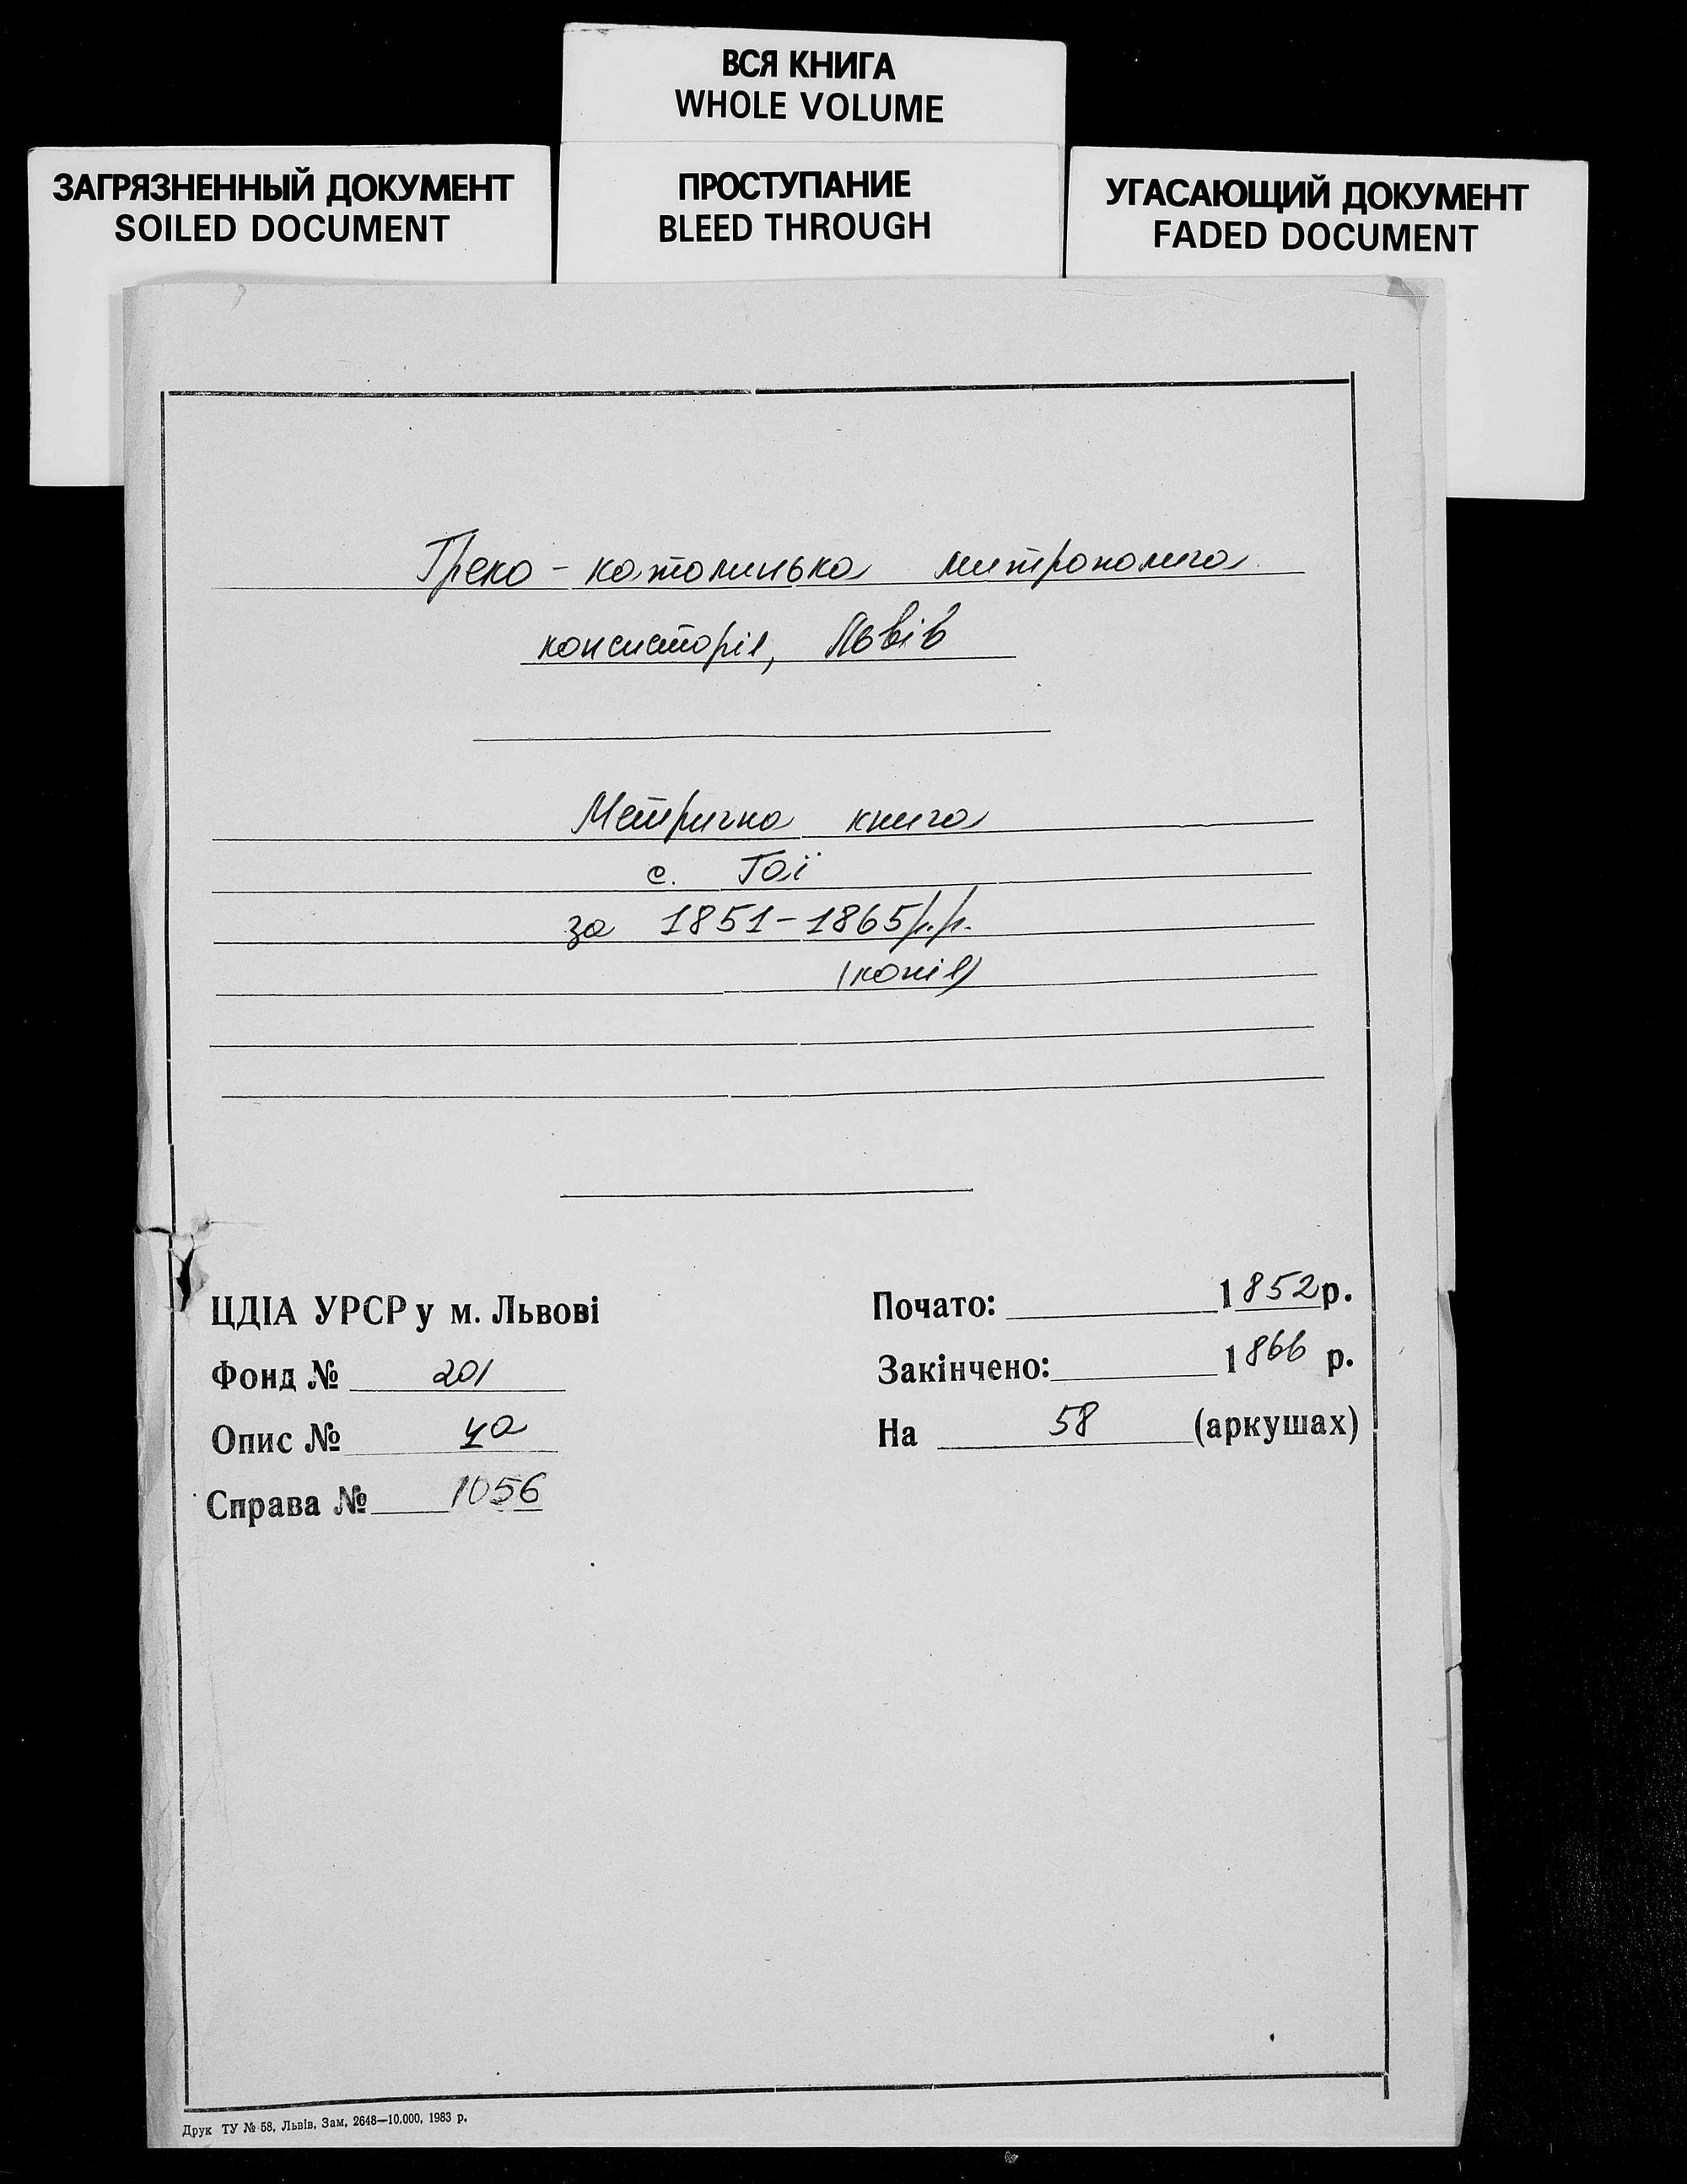 ВСЯ КНИГА
WHOLE VOLUME
ЗАГРЯЗНЕННЫЙ ДОКУМЕНТ
SOILED DOCUMENT
ПРОСТУПАНИЕ
BLEED THROUGH
УГАСАЮЩИЙ ДОКУМЕНТ
FADED DOCUMENT
Греко-католицька митрополича
консисторія, Львів
Метрична книга
с. Гаї
за 1851-1865р.р.
(копія)
ЦДІА УРСР у м. Львові
Фонд № 201
Опис № 4а
Справа № 1056
Почато: 1852 р.
Закінчено: 1866 р.
На 58 (аркушах)
Друк ТУ № 58, Львів, Зам. 2648—10.000, 1983 р.